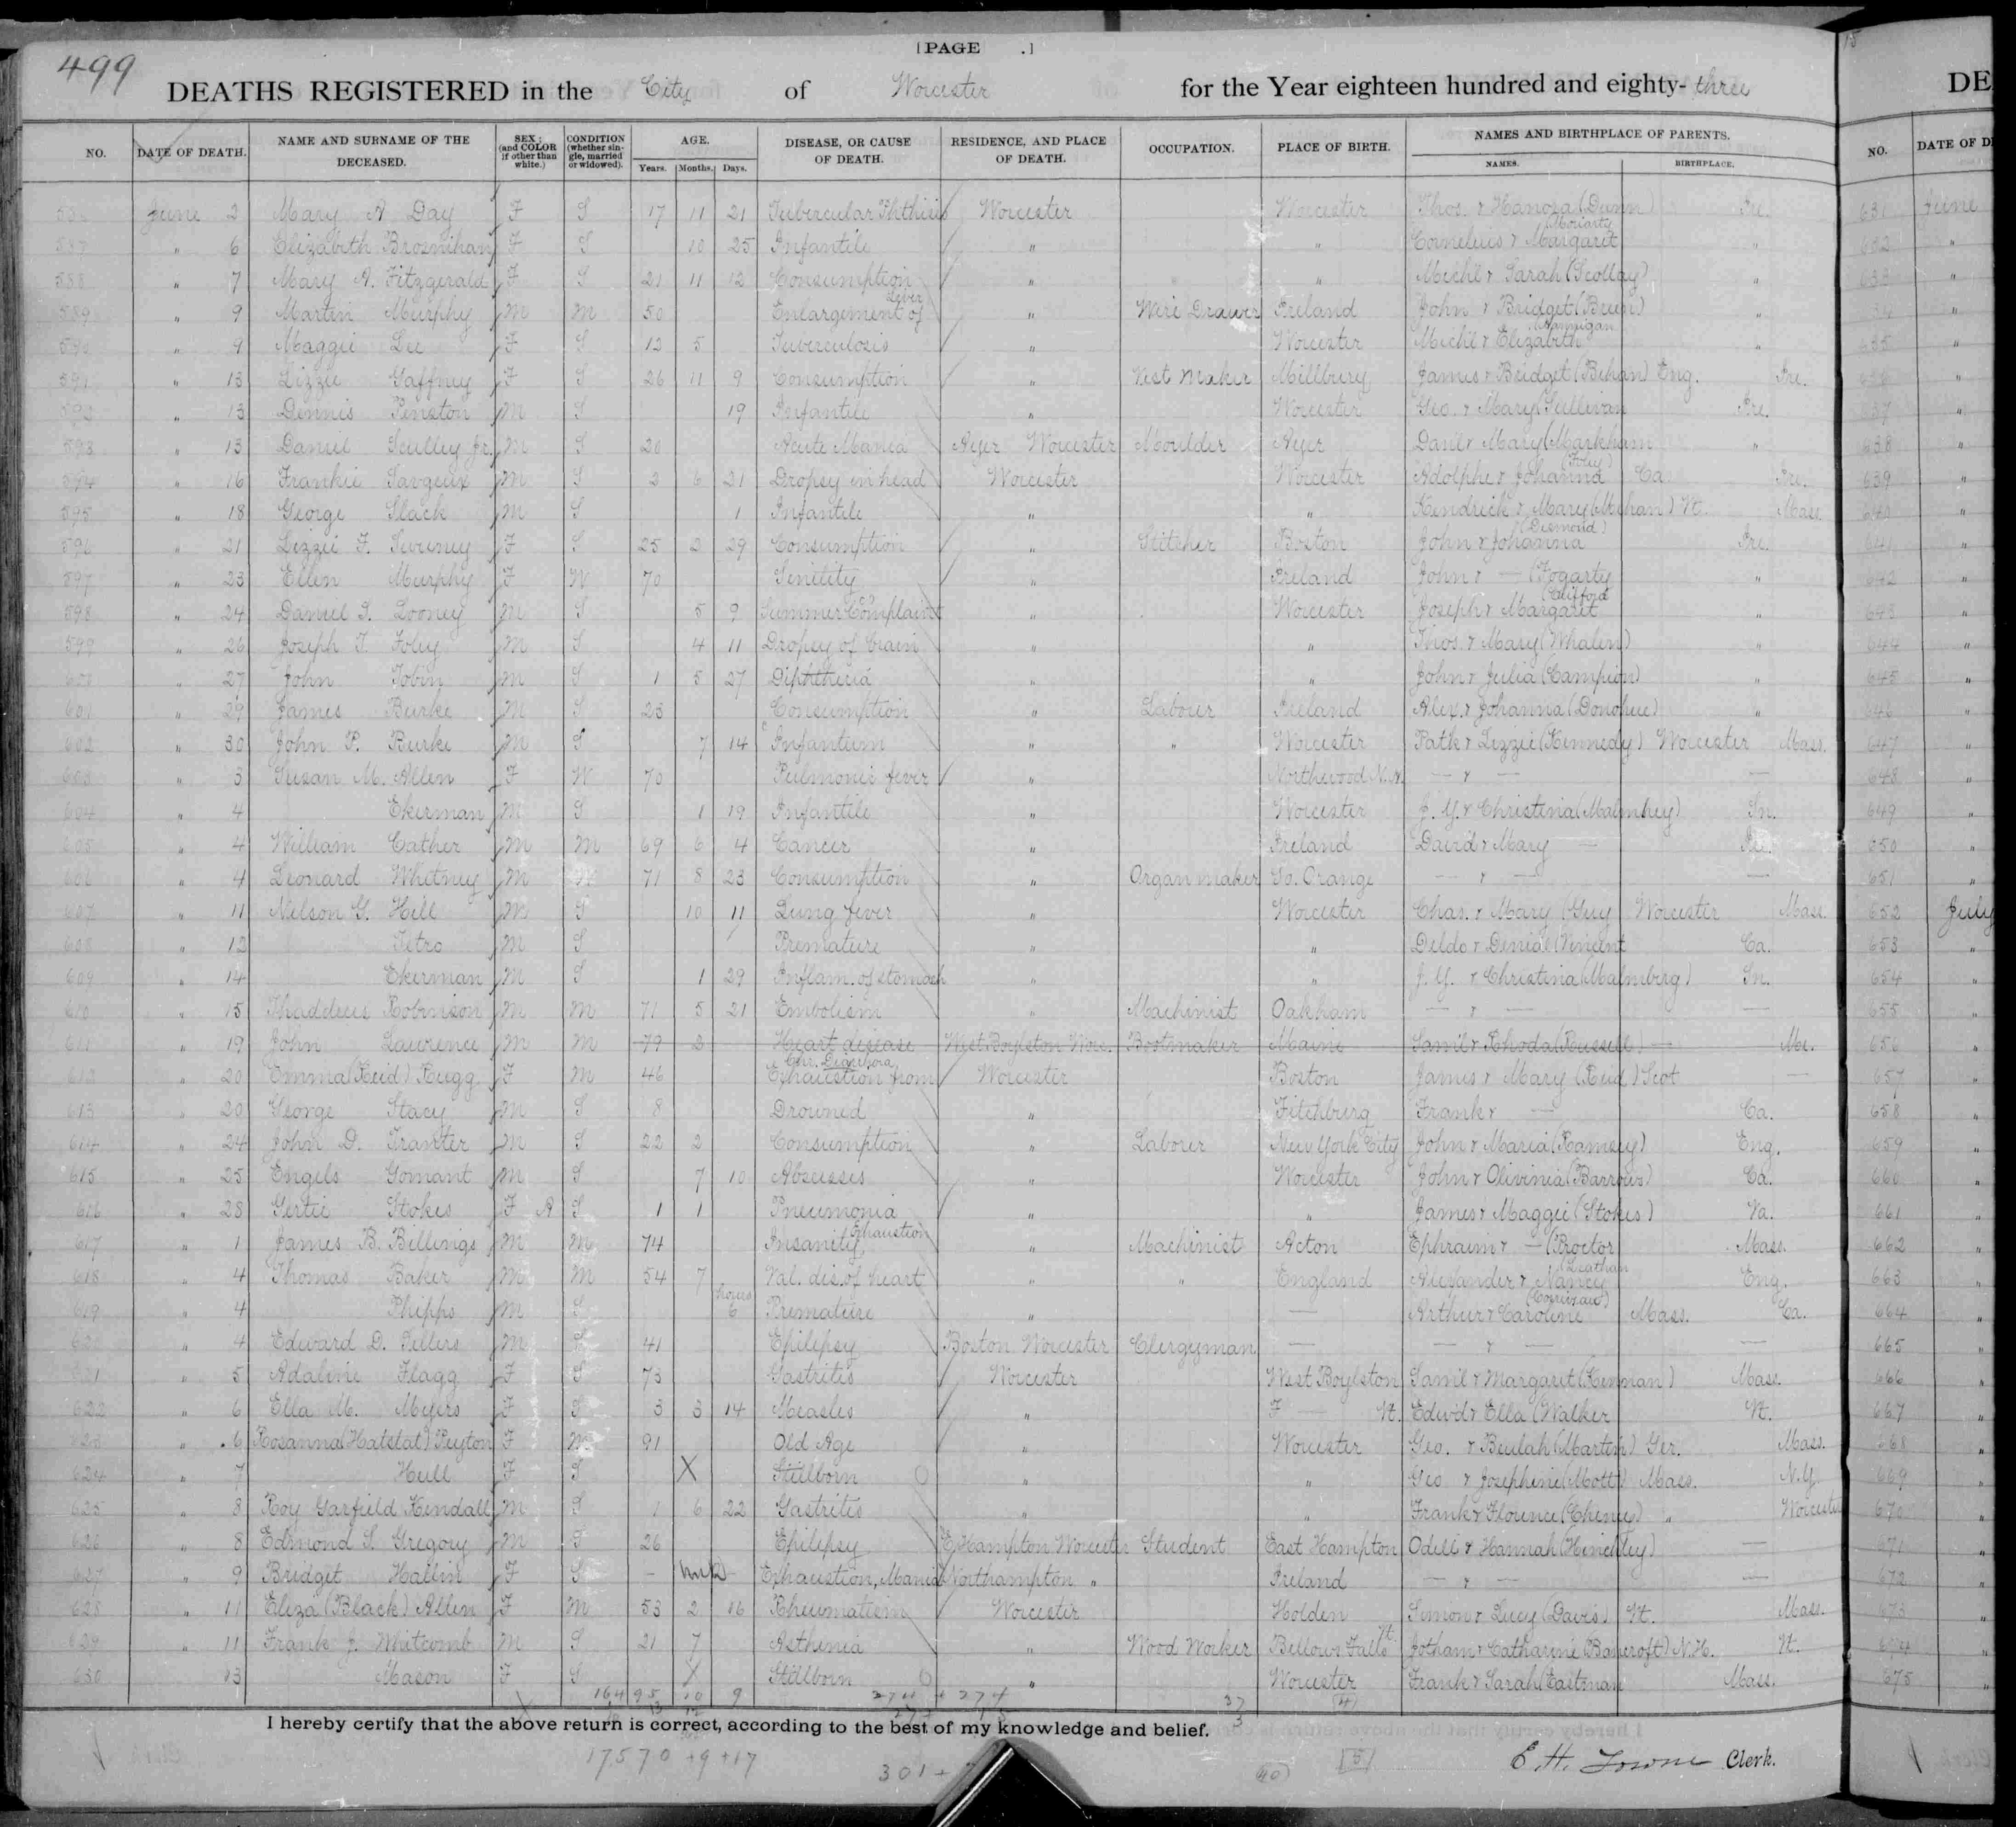 499
[PAGE .]
DEATHS REGISTERED in the City of Worcester for the Year eighteen hundred and eighty-three
NO. DATE OF DEATH. NAME AND SURNAME OF THE DECEASED. SEX; (and COLOR if other than white.) CONDITION (whether single, married or widowed). AGE. Years. Months. Days. DISEASE, OR CAUSE OF DEATH. RESIDENCE, AND PLACE OF DEATH. OCCUPATION. PLACE OF BIRTH. NAMES AND BIRTHPLACE OF PARENTS. NAMES. BIRTHPLACE.
June 2 Mary A Day F S 17 11 21 Tubercular Phthisis Worcester Worcester Thos. & Hanora (Dunn) Ire.
587 " 6 Elizabeth Brosnihan F S 10 25 Infantile " " Cornelius & Margaret (Moriarty "
588 " 7 Mary A. Fitzgerald F S 21 11 12 Consumption " " Michl & Sarah (Scollay) "
589 " 9 Martin Murphy M M 50 Enlargement of Liver " Wire Drawer Ireland John & Bridget (Breen) "
590 " 9 Maggie Lee F S 12 5 Tuberculosis " Worcester Michl & Elizabeth (Hannigan "
591 " 13 Lizzie Gaffney F S 26 11 9 Consumption " Vest Maker Millbury James & Bridget (Behan) Eng. Ire.
592 " 13 Dennis Penston M S 19 Infantile " Worcester Geo. & Mary (Sullivan Ire.
593 " 13 Daniel Sculley Jr. M S 20 Acute Mania Ayer Worcester Moulder Ayer Danl & Mary (Markham "
594 " 16 Frankie M S 2 6 21 Dropsy in head Worcester Worcester Adolphe & Johanna (Foley) Ca. Ire.
595 " 18 George Slack M S 1 Infantile " " Kendrick & Mary (Mehan) Vt. Mass.
596 " 21 Lizzie F. Sweeney F S 25 2 29 Consumption " Stitcher Boston John & Johanna (Desmond) Ire.
597 " 23 Ellen Murphy F W 70 Senility " Ireland John & — (Fogarty "
598 " 24 Daniel J. Looney M S 5 9 Summer Complaint " Worcester Joseph & Margaret (Clifford "
599 " 26 Joseph T. Foley M S 4 11 Dropsy of brain " " Thos. & Mary (Whalen) "
600 " 27 John Tobin M S 1 5 27 Diphtheria " " John & Julia (Campion) "
601 " 29 James Burke M S 23 Consumption " Labour Ireland Alex. & Johanna (Donohue) "
602 " 30 John P. Burke M S 7 14 C Infantum " " Worcester Patk & Lizzie (Kennedy) Worcester Mass.
603 " 3 Susan M. Allen F W 70 Pulmonic fever " Northwood N.H. — & — —
604 " 4 Ekerman M S 1 19 Infantile " Worcester J. Y. & Christina Sn.
605 " 4 William Cather M M 69 6 4 Cancer " Ireland David & Mary — Ire.
606 " 4 Leonard Whitney M M 71 8 23 Consumption " Organ maker So. Orange — & — —
607 " 11 Nelson G. Hill M S 10 11 Lung fever " Worcester Chas. & Mary (Guy Worcester Mass.
608 " 12 Tetro M S Premature " " Dildo & (Vincent Ca.
609 " 14 Ekerman M S 1 29 Inflam. of stomach " " J. Y. & Christina (Malmberg) Sn.
610 " 15 Thaddeus Robinson M M 71 5 21 Embolism " Machinist Oakham — & — —
611 " 19 John Lawrence M M 79 2 Heart disease West Boylston Worc. Bootmaker Maine Saml & Rhoda (Russell) — Me.
612 " 20 Emma (Reid) Rugg F M 46 Exhaustion from Chr. Diarrhora Worcester Boston James & Mary (Reid) Scot —
613 " 20 George Stacy M S 8 Drowned " Fitchburg Frank & — Ca.
614 " 24 John D. Tranter M S 22 2 Consumption " Labourer New York City John & Maria (Ramsey) Eng.
615 " 25 Engels Gomant M S 7 10 Abscesses " Worcester John & Olivinia (Barrows) Ca.
616 " 28 Gertie Stokes F A S 1 1 Pneumonia " " James & Maggie (Stokes) Va.
617 " 1 James B. Billings M M 74 Insanity Exhaustion " Machinist Acton Ephraim & — (Proctor Mass.
618 " 4 Thomas Baker M M 54 7 Val. dis. of heart " " England Alexander & Nancy (Leathan Eng.
619 " 4 Phipps M S hours 6 Premature " — Arthur & Caroline Mass. Ca.
620 " 4 Edward D. M S 41 Epilepsy Boston Worcester Clergyman — — & — —
621 " 5 Adaline Flagg F S 73 Gastritis Worcester West Boylston Saml & Margaret (Kinman) Mass.
622 " 6 Ella M. Myers F S 3 3 14 Measles " F — Vt. Edwd & Ella (Walker Vt.
623 " 6 Rosanna (Hatstat) Peyton F M 91 Old Age " Worcester Geo. & Beulah (Martin) Ger. Mass.
624 " 7 Hull F S X Stillborn O " " Geo & Josephine (Mott) Mass. N.Y.
625 " 8 Roy Garfield Kendall M S 1 6 22 Gastritis " " Frank & Florence (Cheney) " Worcester
626 " 8 Edmond S. Gregory M S 26 Epilepsy E. Hampton Worcester Student East Hampton Odell & Hannah (Hinckley) —
627 " 9 Bridget F S — Exhaustion, Mania Northampton " Ireland — & — —
628 " 11 Eliza (Black) Allen F M 53 2 16 Rheumatism Worcester Holden Simon & Lucy (Davis) Vt. Mass.
629 " 11 Frank J. Whitcomb M S 21 7 Asthenia " Wood Worker Bellows Falls Vt. Jotham & Catharine (Bancroft) N.H. Vt.
630 " 13 Mason F S X Stillborn O " Worcester Frank & Sarah (Eastman Mass.
164 95 10 9
I hereby certify that the above return is correct, according to the best of my knowledge and belief.
17570 +9 +17
301 +
E. H. Towne Clerk.
DE
NO. DATE OF D
631 June
632 "
633 "
635 "
637 "
638 "
639 "
640 "
641 "
642 "
643 "
644 "
645 "
646 "
647 "
648 "
649 "
650 "
651 "
652 July
653 "
654 "
655 "
656 "
657 "
658 "
659 "
660 "
661 "
662 "
663 "
664 "
665 "
666 "
667 "
668 "
669 "
670 "
671 "
672 "
673 "
674 "
675 "